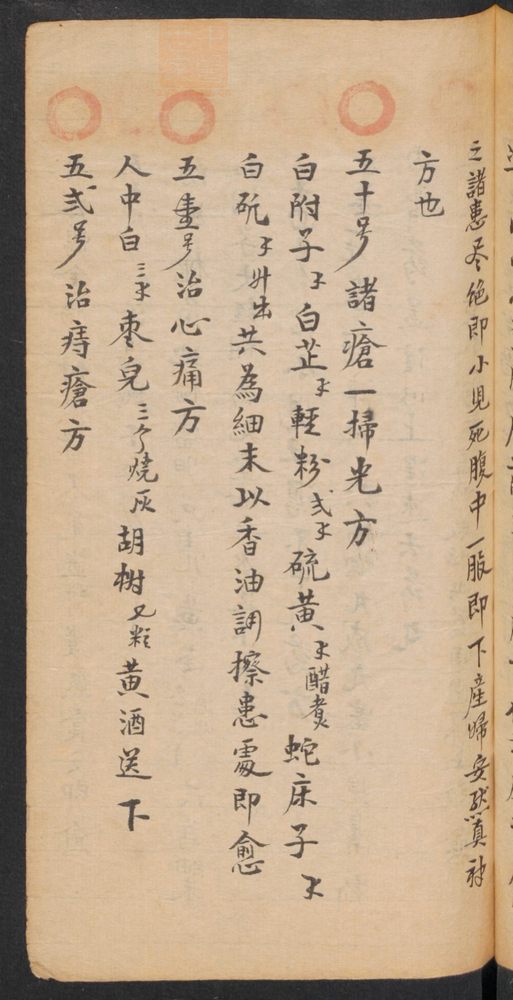 之諸患尽绝即小児死腹中一服即下產婦安然真神
方也
五十号 諸瘡一掃光方
白附子 白芷 輕粉弍 硫黄 醋煮 蛇床子
白矾 共為細末以香油調擦患處即愈
五壹号治心痛方
人中白三 枣皃三个烧灰 胡椒 粒 黄酒送下
五弍号治痔瘡方